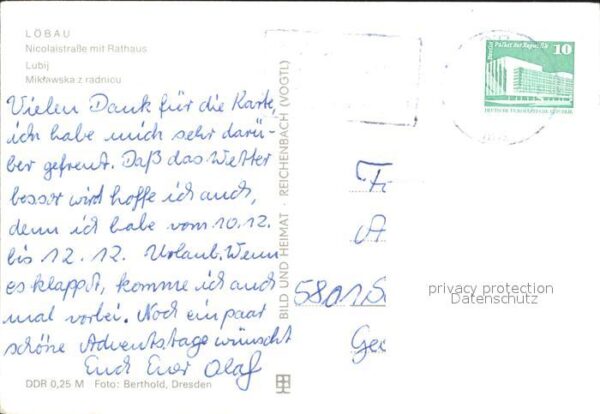 LÖBAU
Nicolaistraße mit Rathaus
Lubij
Mikławska z radnicu
Vielen Dank für die Karte,
ich habe mich sehr darü-
ber gefreut. Daß das Wetter
besser wird hoffe ich auch,
denn ich habe vom 10.12.
bis 12.12. Urlaub. Wenn
es klappt, komme ich auch
mal vorbei. Noch ein paar
schöne Adventstage wünscht
Euch Euer Olaf
DDR 0,25 M Foto: Berthold, Dresden
BILD UND HEIMAT · REICHENBACH (VOGTL)
Berlin Palast der Republik
10
DEUTSCHE DEMOKRATISCHE REPUBLIK
5801
privacy protection
Datenschutz